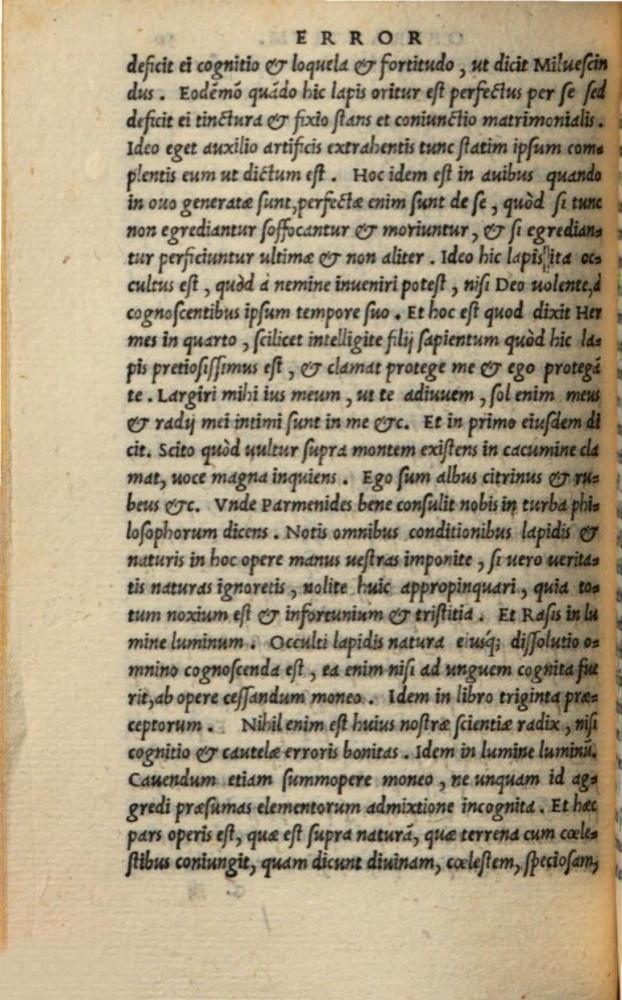 ERROR
deficit ei cognitio & loquela & fortitudo, ut dicit Miluescin
dus. Eodēmō quādo hic lapis oritur est perfectus per se sed
deficit ei tinctura & fixio stans et coniunctio matrimonialis.
Ideo eget auxilio artificis extrahentis tunc statim ipsum com-
plentis eum ut dictum est. Hoc idem est in auibus quando
in ouo generatæ sunt, perfectæ enim sunt de se, quòd si tunc
non egrediantur soffocantur & moriuntur, & si egredian-
tur perficiuntur ultimæ & non aliter. Ideo hic lapis ita oc-
cultus est, quòd à nemine inueniri potest, nisi Deo uolente, à
cognoscentibus ipsum tempore suo. Et hoc est quod dixit Her
mes in quarto, scilicet intelligite filij sapientum quòd hic la-
pis pretiosissimus est, & clamat protege me & ego protegā
te. Largiri mihi ius meum, ut te adiuuem, sol enim meus
& radij mei intimi sunt in me &c. Et in primo eiusdem di
cit. Scito quòd uultur supra montem existens in cacumine cla
mat, uoce magna inquiens. Ego sum albus citrinus & ru-
beus &c. Vnde Parmenides bene consulit nobis in turba phi-
losophorum dicens. Notis omnibus conditionibus lapidis &
naturis in hoc opere manus uestras imponite, si uero uerita-
tis naturas ignoretis, nolite huic appropinquari, quia to-
tum noxium est & infortunium & tristitia. Et Rasis in lu
mine luminum. Occulti lapidis natura eiusq; dissolutio o-
mnino cognoscenda est, ea enim nisi ad unguem cognita fue
rit, ab opere cessandum moneo. Idem in libro triginta præ-
ceptorum. Nihil enim est huius nostræ scientiæ radix, nisi
cognitio & cautelæ erroris bonitas. Idem in lumine luminū.
Cauendum etiam summopere moneo, ne unquam id ag-
gredi præsumas elementorum admixtione incognita. Et hæc
pars operis est, quæ est supra naturā, quæ terrena cum cœle-
stibus coniungit, quam dicunt diuinam, cœlestem, speciosam,